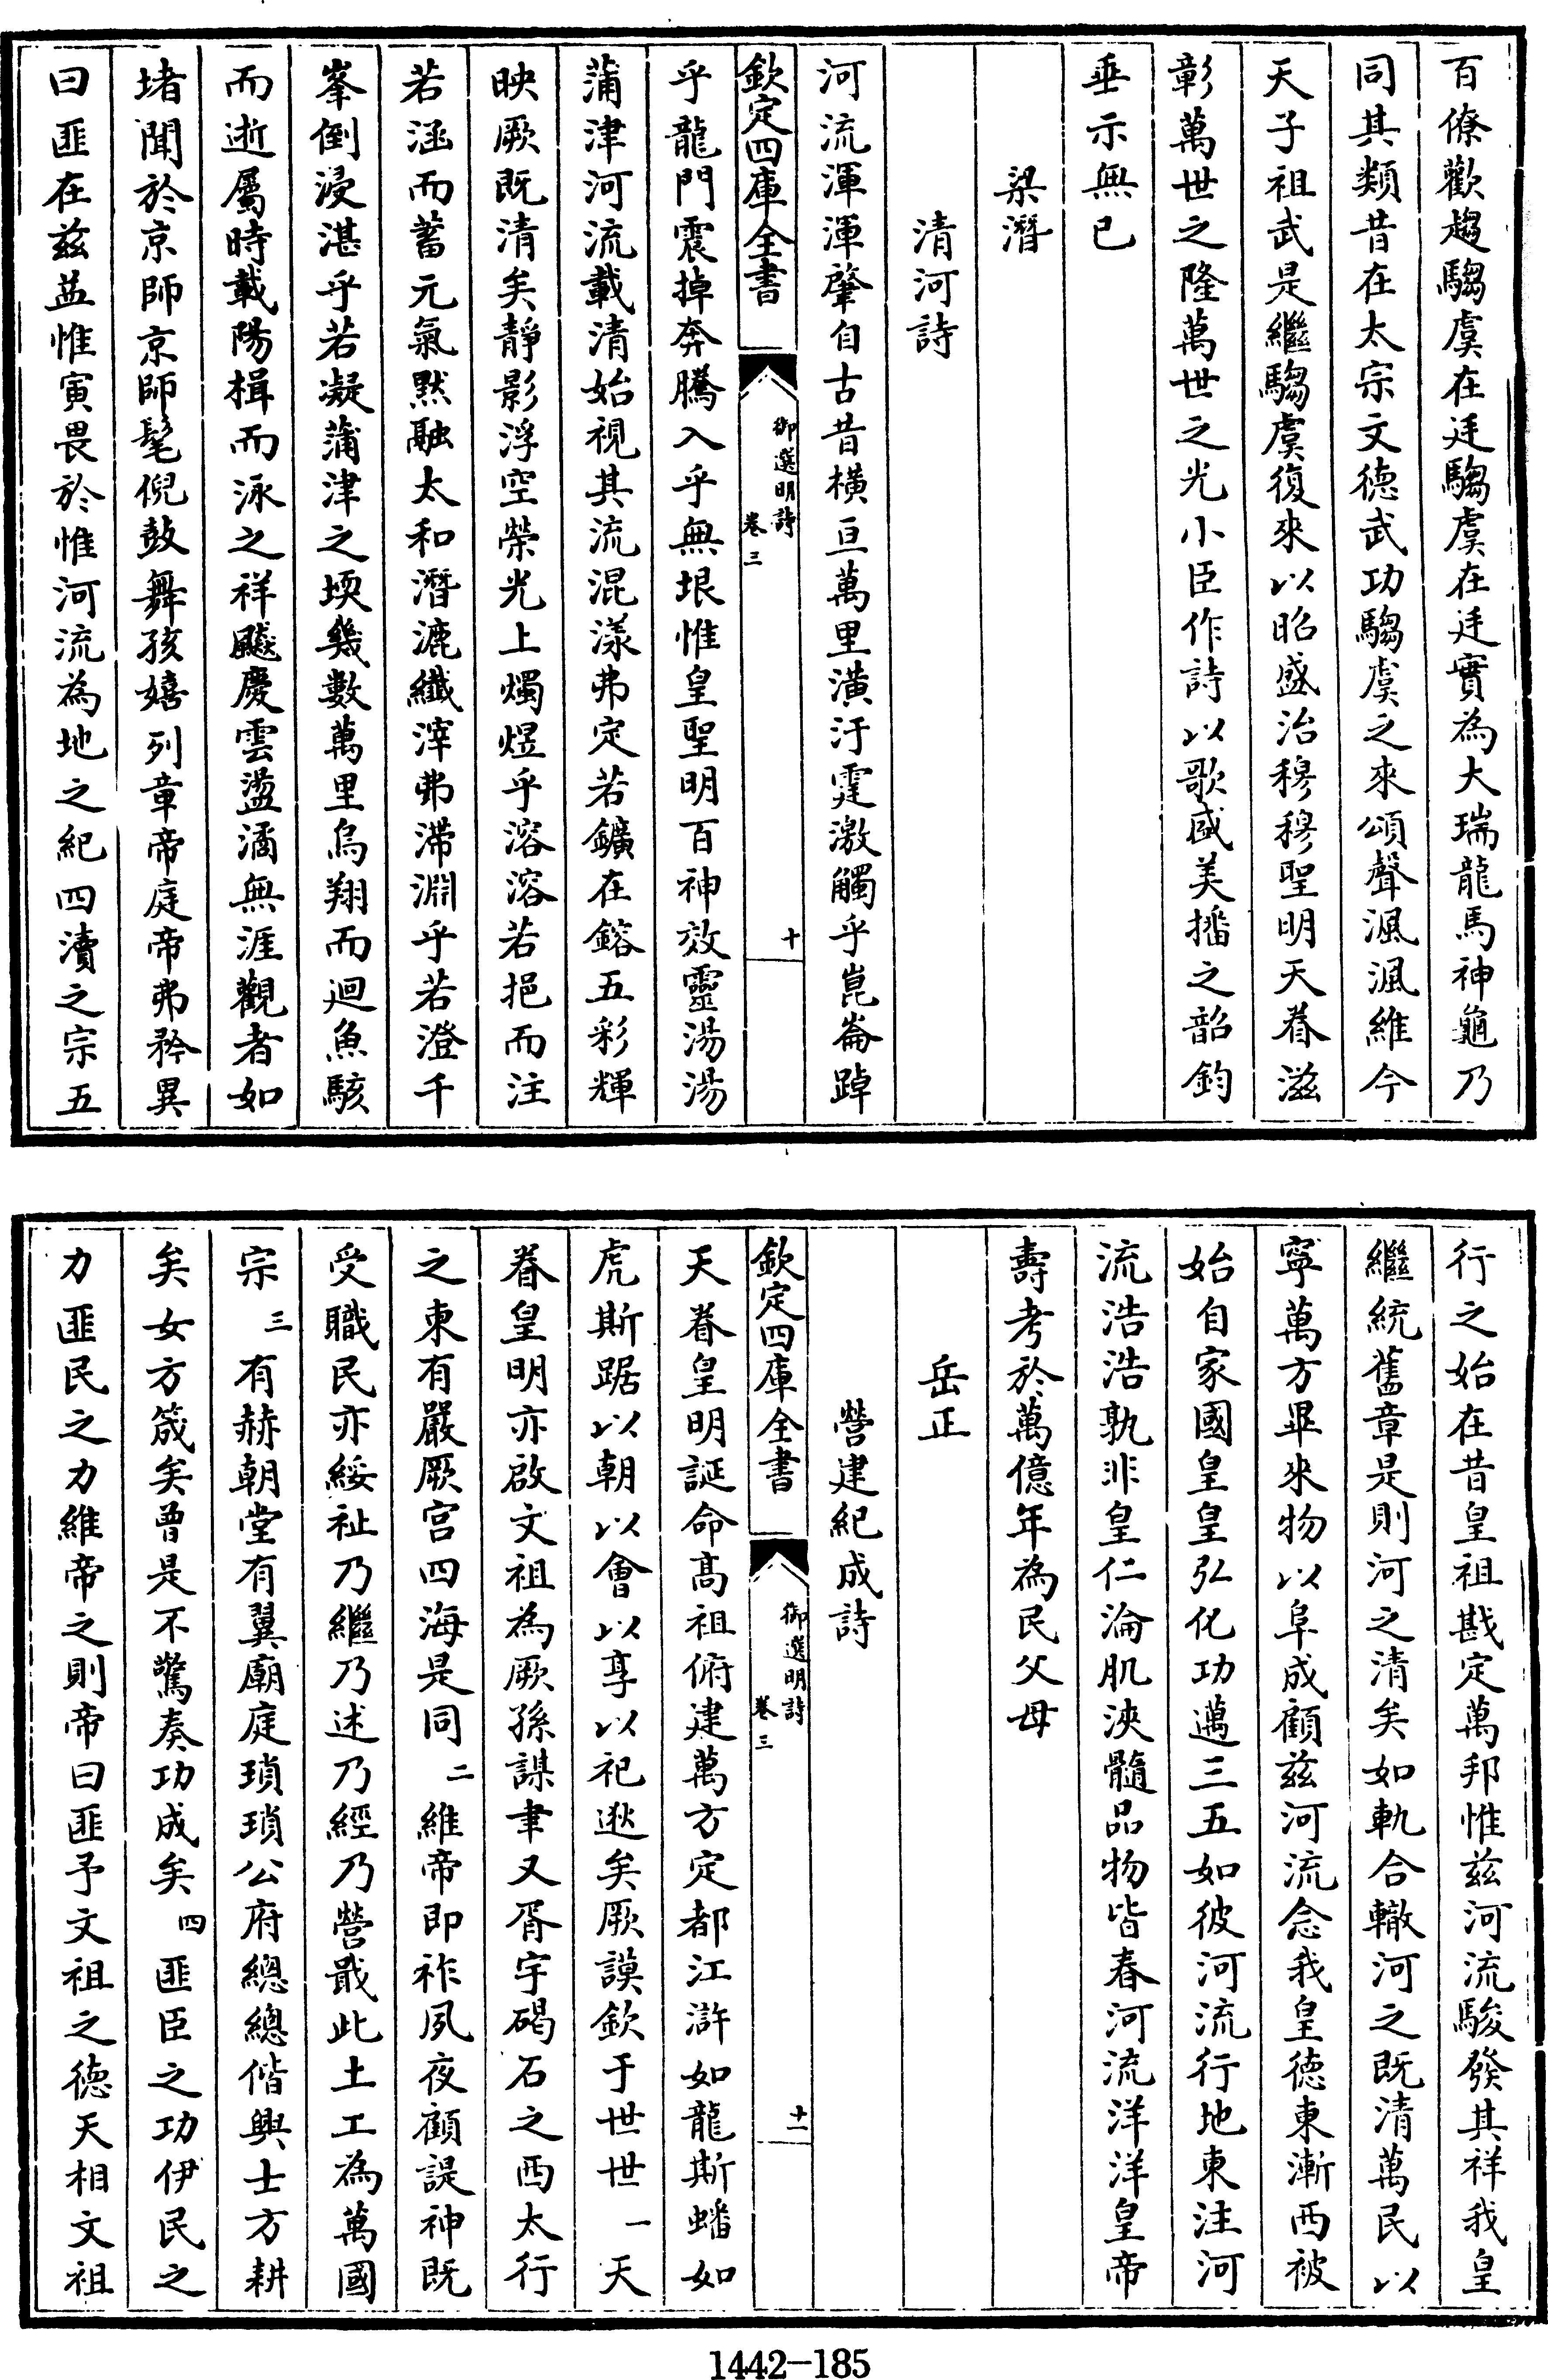 百僚歡趨騶虞在廷騶虞在廷實為大瑞龍馬神龜乃
同其類昔在太宗文德武功騶虞之來頌聲渢渢維今
天子祖武是繼騶虞復來以昭盛治穆穆聖明天眷滋
彰萬世之隆萬世之光小臣作詩以歌盛美播之韶鈞
垂示無已
梁潛
清河詩
河流渾渾肇自古昔橫亘萬里潢汙霆激觸乎崑崙踔
欽定四庫全書
御選明詩
卷三
十
乎龍門震掉奔騰入乎無垠惟皇聖明百神效靈湯湯
蒲津河流載清始視其流混漾弗定若鑛在鎔五彩輝
映厥既清矣靜影浮空榮光上燭煜乎溶溶若挹而注
若涵而蓄元氣黙融太和潛漉纎滓弗滯淵乎若澄千
峯倒浸湛乎若凝蒲津之堧幾數萬里烏翔而迴魚駭
而逝屬時載陽楫而泳之祥飈慶雲盪潏無涯觀者如
堵聞於京師京師髦倪鼓舞孩嬉列章帝庭帝弗矜異
曰匪在兹益惟寅畏於惟河流為地之紀四瀆之宗五
行之始在昔皇祖戡定萬邦惟兹河流駿發其祥我皇
繼統舊章是則河之清矣如軌合轍河之既清萬民以
寧萬方畢來物以阜成顧兹河流念我皇德東漸西被
始自家國皇皇弘化功邁三五如彼河流行地東注河
流浩浩孰非皇仁淪肌浹髓品物皆春河流洋洋皇帝
壽考於萬億年為民父母
岳正
營建紀成詩
欽定四庫全書
御選明詩
卷三
十一
天眷皇明誕命髙祖俯建萬方定都江滸如龍斯蟠如
虎斯踞以朝以會以享以祀逖矣厥謨欽于世世一天
眷皇明亦啟文祖為厥孫謀聿又胥宇碣石之西太行
之東有嚴厥宫四海是同二維帝即祚夙夜顧諟神既
受職民亦綏祉乃繼乃述乃經乃營戢此土工為萬國
宗三有赫朝堂有翼廟庭瑣瑣公府總總偕興士方耕
矣女方筬矣曾是不驚奏功成矣四匪臣之功伊民之
力匪民之力維帝之則帝曰匪予文祖之德天相文祖
1442-185